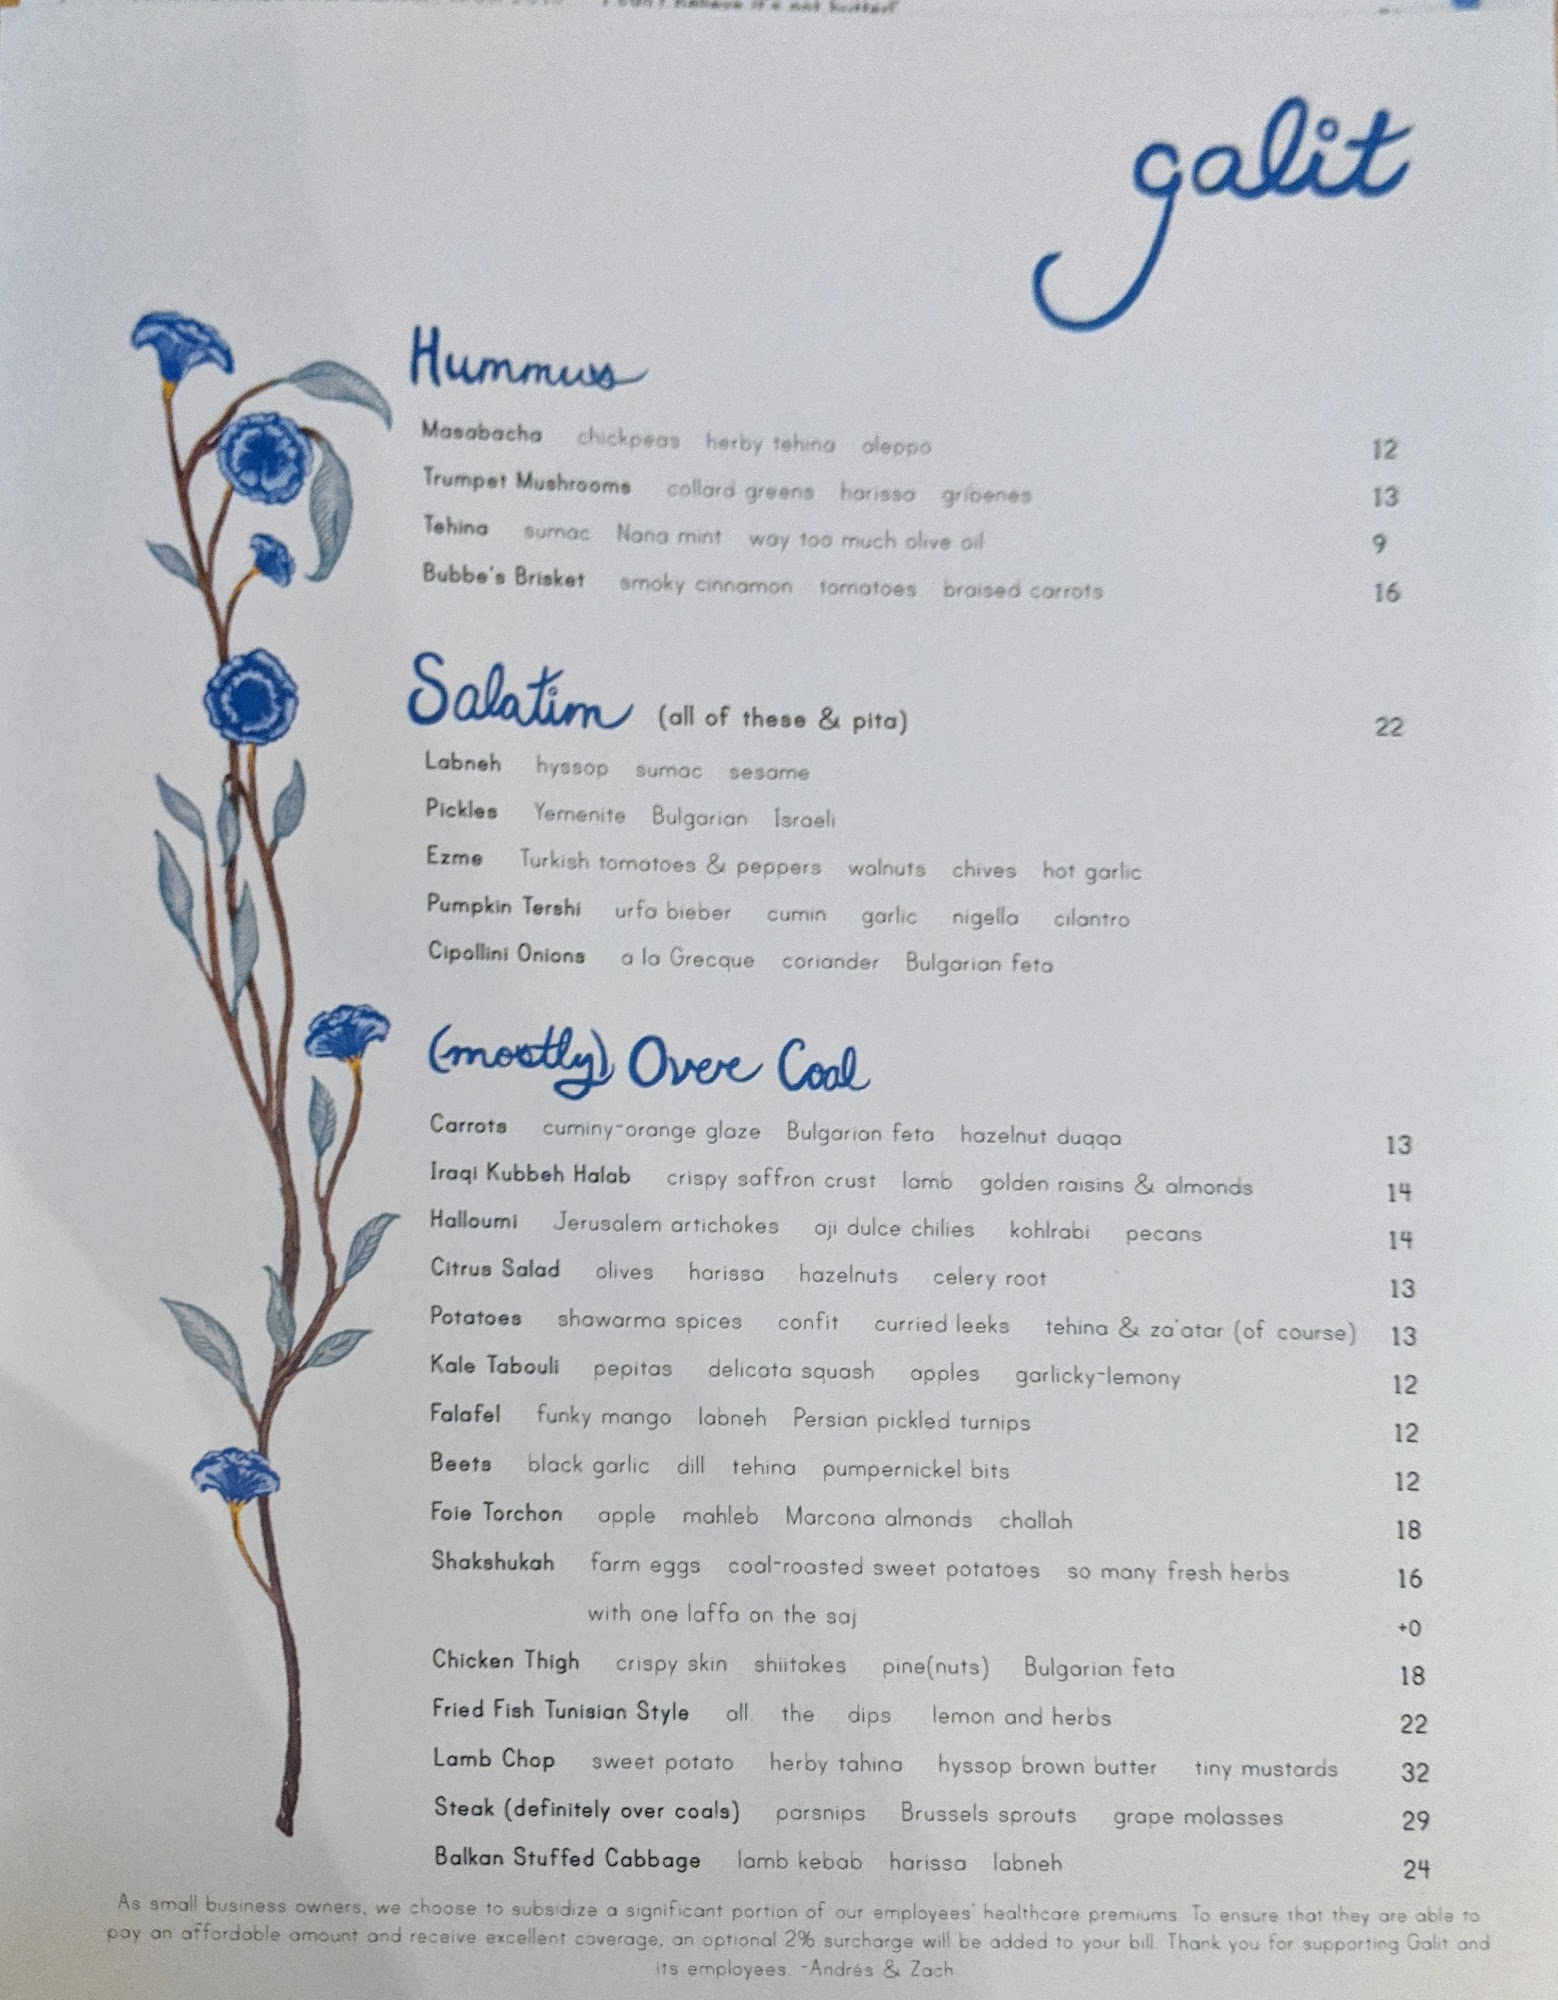 I can't believe it's not butter!
galit
Hummus
Masabacha chickpeas herby tehina aleppo 12
Trumpet Mushrooms collard greens harissa gribenes 13
Tehina sumac Nana mint way too much olive oil 9
Bubbe's Brisket smoky cinnamon tomatoes braised carrots 16
Salatim (all of these & pita) 22
Labneh hyssop sumac sesame
Pickles Yemenite Bulgarian Israeli
Ezme Turkish tomatoes & peppers walnuts chives hot garlic
Pumpkin Tershi urfa bieber cumin garlic nigella cilantro
Cipollini Onions a la Grecque coriander Bulgarian feta
(mostly) Over Coal
Carrots cuminy-orange glaze Bulgarian feta hazelnut duqqa 13
Iraqi Kubbeh Halab crispy saffron crust lamb golden raisins & almonds 14
Halloumi Jerusalem artichokes aji dulce chilies kohlrabi pecans 14
Citrus Salad olives harissa hazelnuts celery root 13
Potatoes shawarma spices confit curried leeks tehina & za'atar (of course) 13
Kale Tabouli pepitas delicata squash apples garlicky-lemony 12
Falafel funky mango labneh Persian pickled turnips 12
Beets black garlic dill tehina pumpernickel bits 12
Foie Torchon apple mahleb Marcona almonds challah 18
Shakshukah farm eggs coal-roasted sweet potatoes so many fresh herbs 16
with one laffa on the saj +0
Chicken Thigh crispy skin shiitakes pine(nuts) Bulgarian feta 18
Fried Fish Tunisian Style all. the dips. lemon and herbs 22
Lamb Chop sweet potato herby tahina hyssop brown butter tiny mustards 32
Steak (definitely over coals) parsnips Brussels sprouts grape molasses 29
Balkan Stuffed Cabbage lamb kebab harissa labneh 24
As small business owners, we choose to subsidize a significant portion of our employees' healthcare premiums. To ensure that they are able to
pay an affordable amount and receive excellent coverage, an optional 2% surcharge will be added to your bill. Thank you for supporting Galit and
its employees. -Andrés & Zach